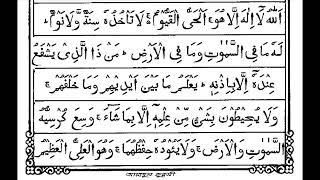 اَللّٰهُ لَاۤ اِلٰهَ اِلَّا هُوَ ۚ اَلْحَیُّ الْقَیُّوْمُ ۚ لَا تَاْخُذُهٗ سِنَةٌ وَّلَا نَوْمٌ ؕ
لَهٗ مَا فِی السَّمٰوٰتِ وَمَا فِی الْاَرْضِ ؕ مَنْ ذَا الَّذِیْ یَشْفَعُ
عِنْدَهٗۤ اِلَّا بِاِذْنِهٖ ؕ یَعْلَمُ مَا بَیْنَ اَیْدِیْهِمْ وَمَا خَلْفَهُمْ ۚ
وَلَا یُحِیْطُوْنَ بِشَیْءٍ مِّنْ عِلْمِهٖۤ اِلَّا بِمَا شَآءَ ۚ وَسِعَ كُرْسِیُّهُ
السَّمٰوٰتِ وَالْاَرْضَ ۚ وَلَا یَـُٔوْدُهٗ حِفْظُهُمَا ۚ وَهُوَ الْعَلِیُّ الْعَظِیْمُ